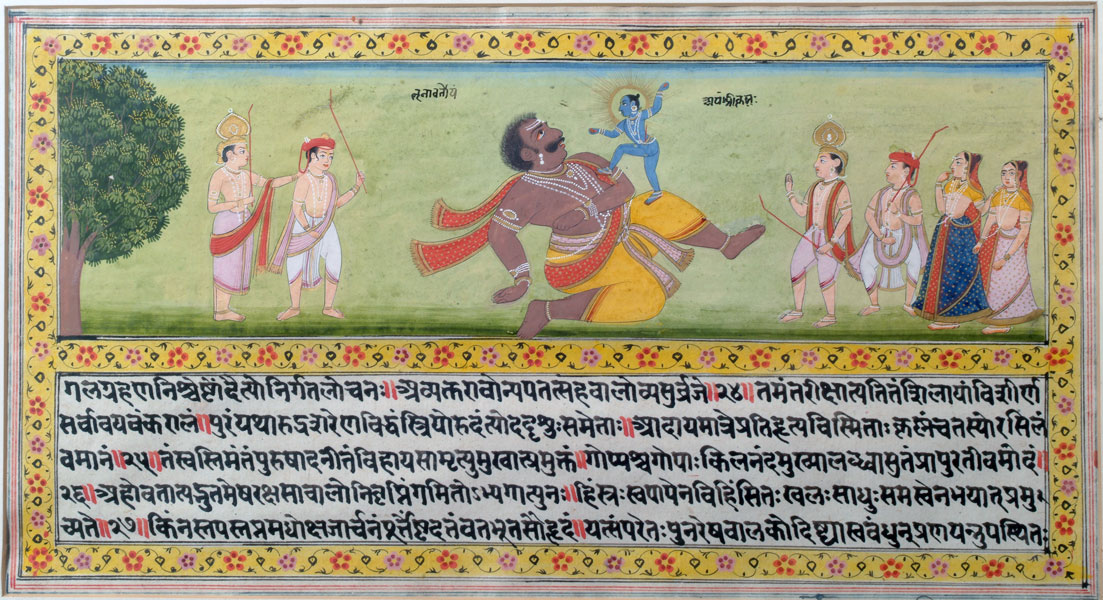 तृनावर्तोयं
अयंश्रीकृष्नः
गलग्रहणनिश्चेष्टोदैत्योनिर्गतलोचनः॥अव्यक्तरावोन्यपतत्सहवालोव्यसुर्व्रजे॥२४॥तमंतरीक्षात्पतितंशिलायांविशीर्ण
सर्वावयवंकरालं॥पुरंयथारुद्रशरेणविद्धंस्त्रियोरुदंत्योददृशुःसमेताः॥प्रादायमात्रेप्रतिहृत्यविस्मिताःकृष्नंचतस्योरसिलं
वमानं॥२५॥तंस्वस्तिमंतंपुरुषादनीतंविहायसामृत्युमुखात्प्रमुक्तं॥गोप्यश्चगोपाःकिलनंदमुख्यालब्ध्वा प्रापुरतीवमोदं॥
२६॥अहोवतात्यद्भुतमेषरक्षसावालो गमितोऽभ्यगात्पुनः॥हिंस्रःस्वपापेनविहिंसितःखलःसाधुःसमत्वेनभयात्प्रमु
च्यते॥२७॥किंनस्तप मधोक्षजार्चनंपूर्तेष्टदत्तंवतभूतसौहृदं॥यत्संपरेतःपुनरेववालकोदिष्ट्यास्ववंधून्प्रणयन्नुपस्थितः